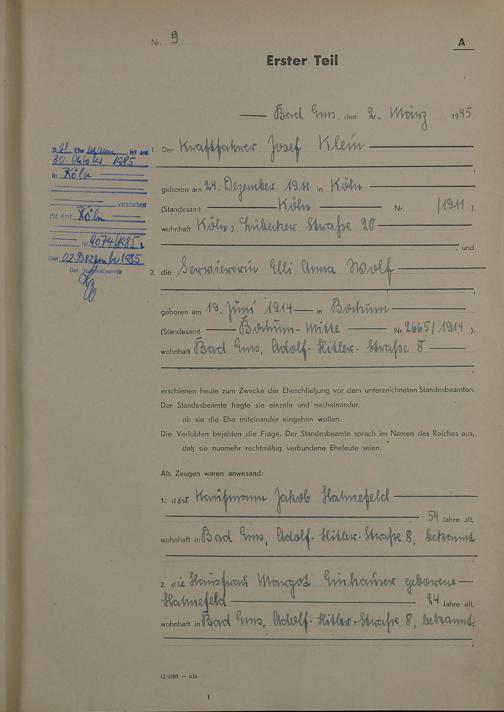 Nr. 9
A
Erster Teil
Bad Ems, den 2. März 1945
1. Der Kraftfahrer Josef Klein
geboren am 24. Dezember 1911 in Köln
(Standesamt Köln Nr. /1911 ).
wohnhaft Köln, Lübecker Straße 20
und
2. die Serviererin Elli Anna Wolf
geboren am 19. Juni 1914 in Bochum
(Standesamt Bochum-Mitte Nr. 2665/1914 ).
wohnhaft Bad Ems, Adolf-Hitler-Straße 8
erschienen heute zum Zwecke der Eheschließung vor dem unterzeichneten Standesbeamten.
Der Standesbeamte fragte sie einzeln und nacheinander,
ob sie die Ehe miteinander eingehen wollen.
Die Verlobten bejahten die Frage. Der Standesbeamte sprach im Namen des Reiches aus,
daß sie nunmehr rechtmäßig verbundene Eheleute seien.
Als Zeugen waren anwesend:
1. der Kaufmann Jakob Hahnefeld
54 Jahre alt,
wohnhaft in Bad Ems, Adolf-Hitler-Straße 8, bekannt
2. die Hausfrau Margot Einhauser geborene
Hahnefeld 24 Jahre alt,
wohnhaft in Bad Ems, Adolf-Hitler-Straße 8, bekannt
1
Ehe ist am
30. Oktober 1985
in Köln
verstorben
(St. Amt Köln
Nr. 9074/1985
den 02. Dezember 1985
Der Standesbeamte